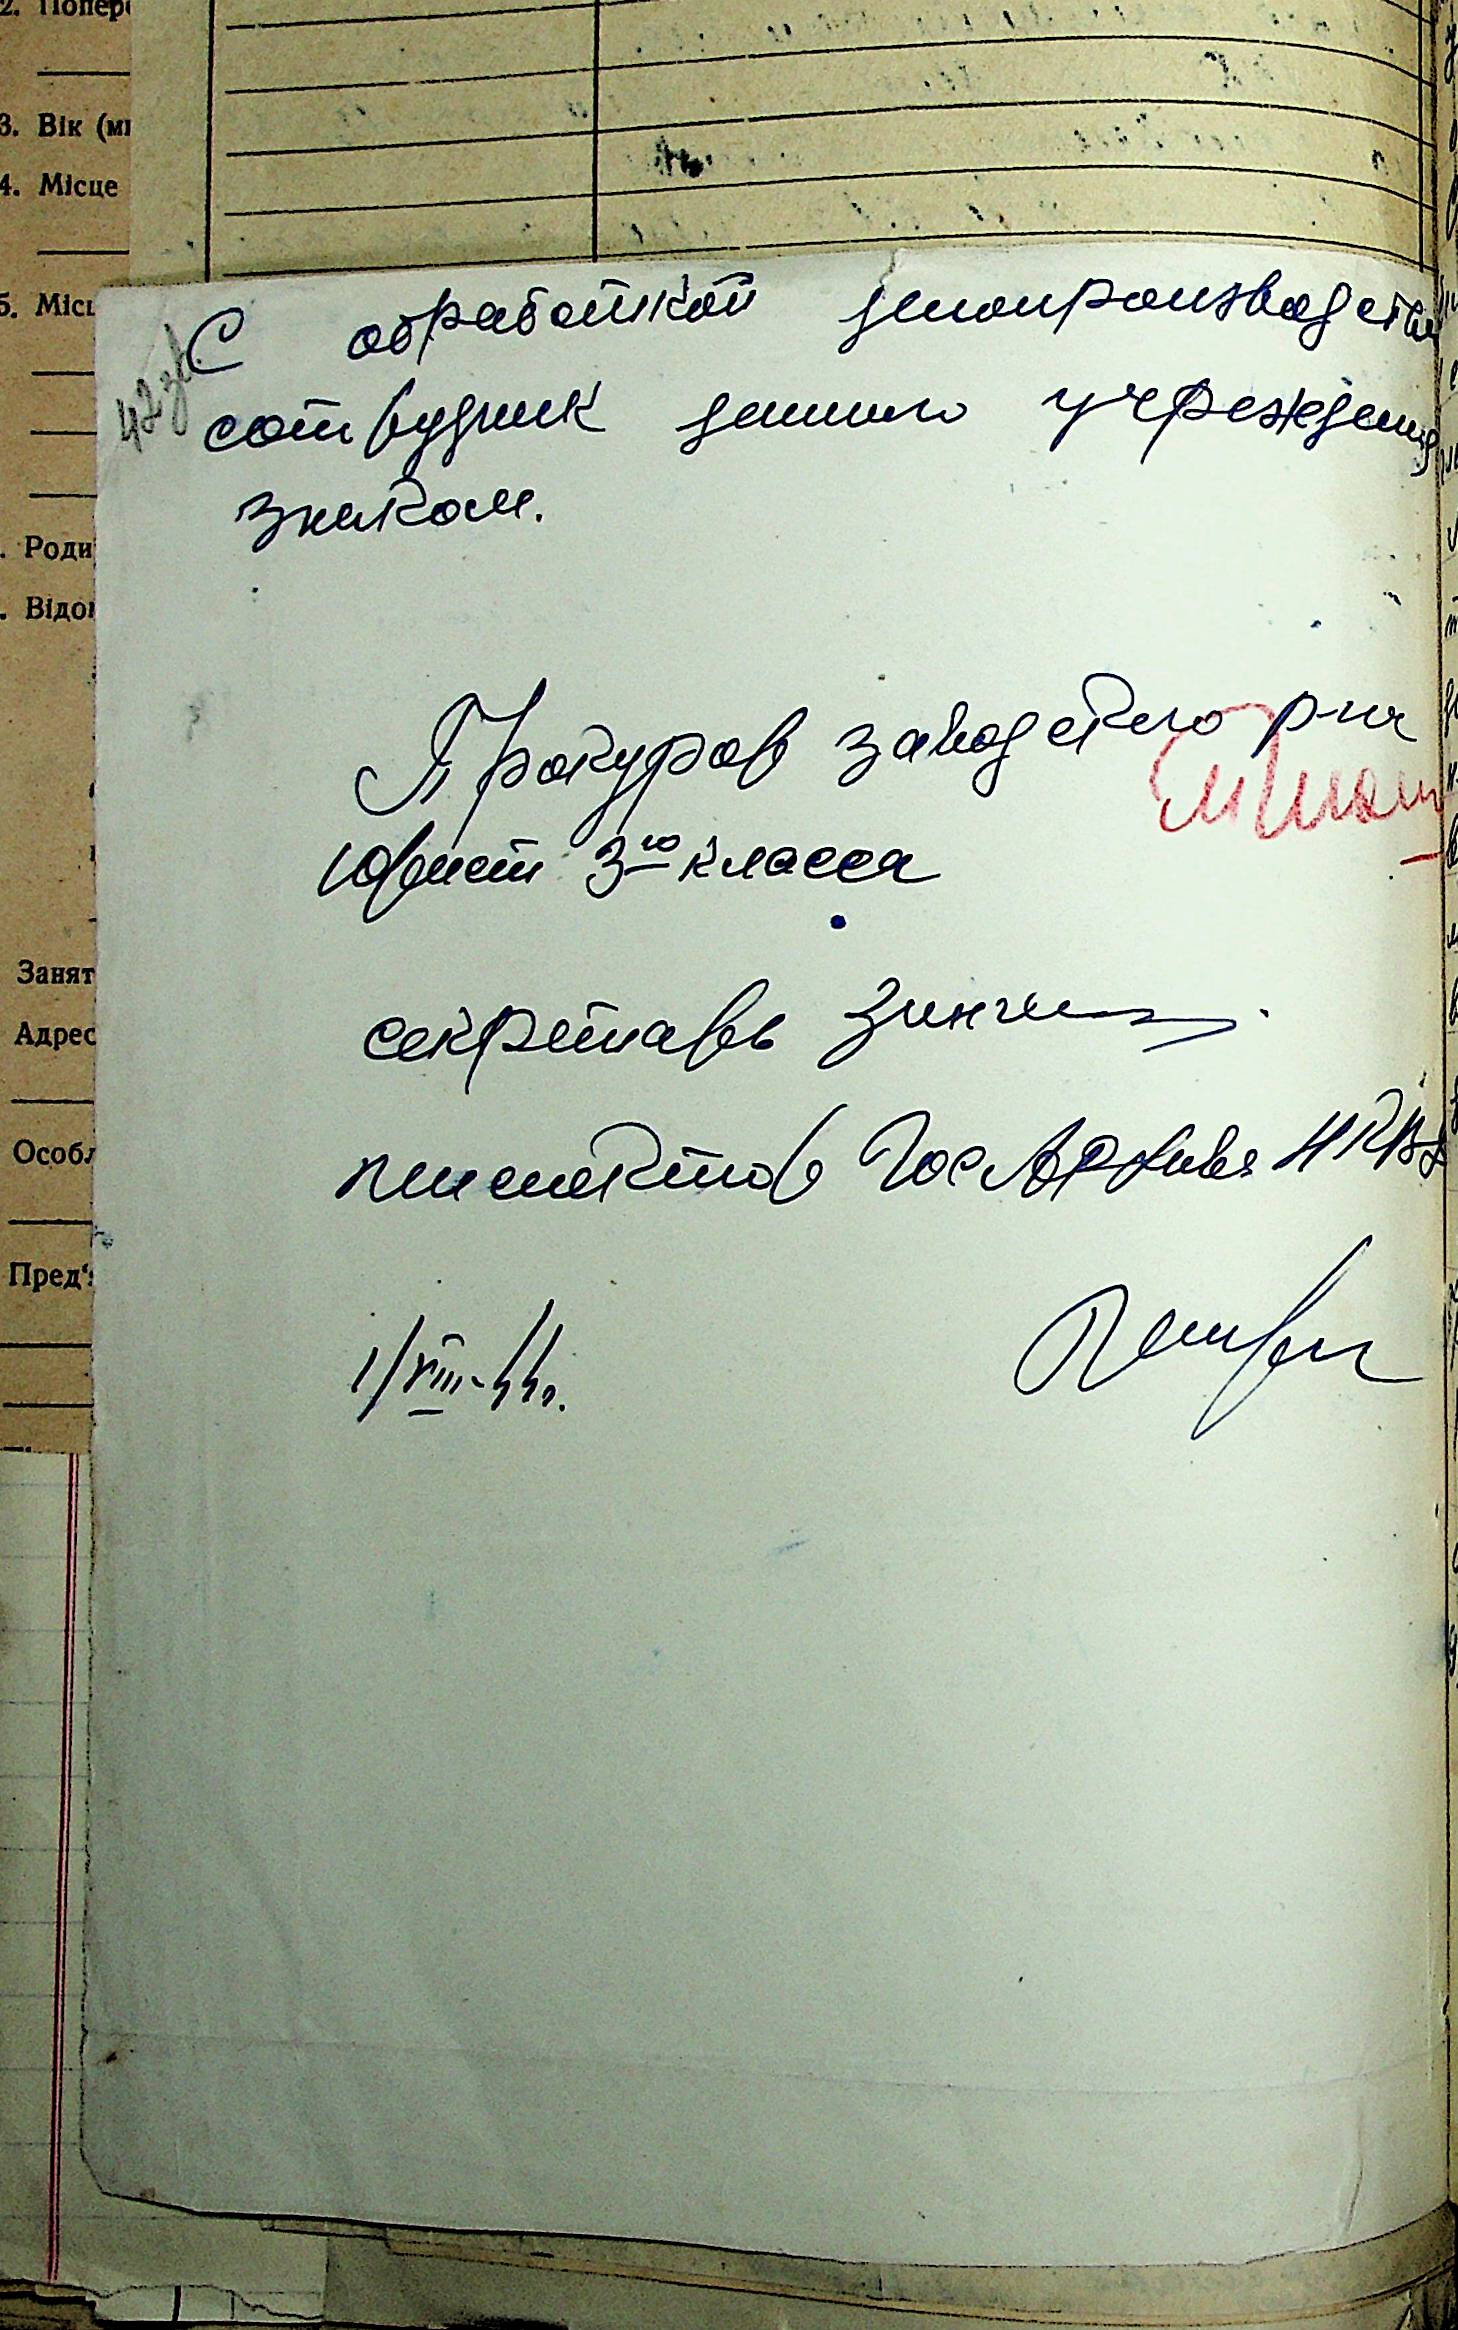 2. Попере
3. Вік (
4. Місце
5. Місц
. Роди
. Відо
Занят
Адрес
Особл
Пред'
42 зв.
С обработкой делопроизводства
сотрудник данного учреждения
знаком.
Прокурор Заводского р-на
юрист 3го класса
секретарь
инспектор ГосАрхива НКВД
1/VIII-44г.